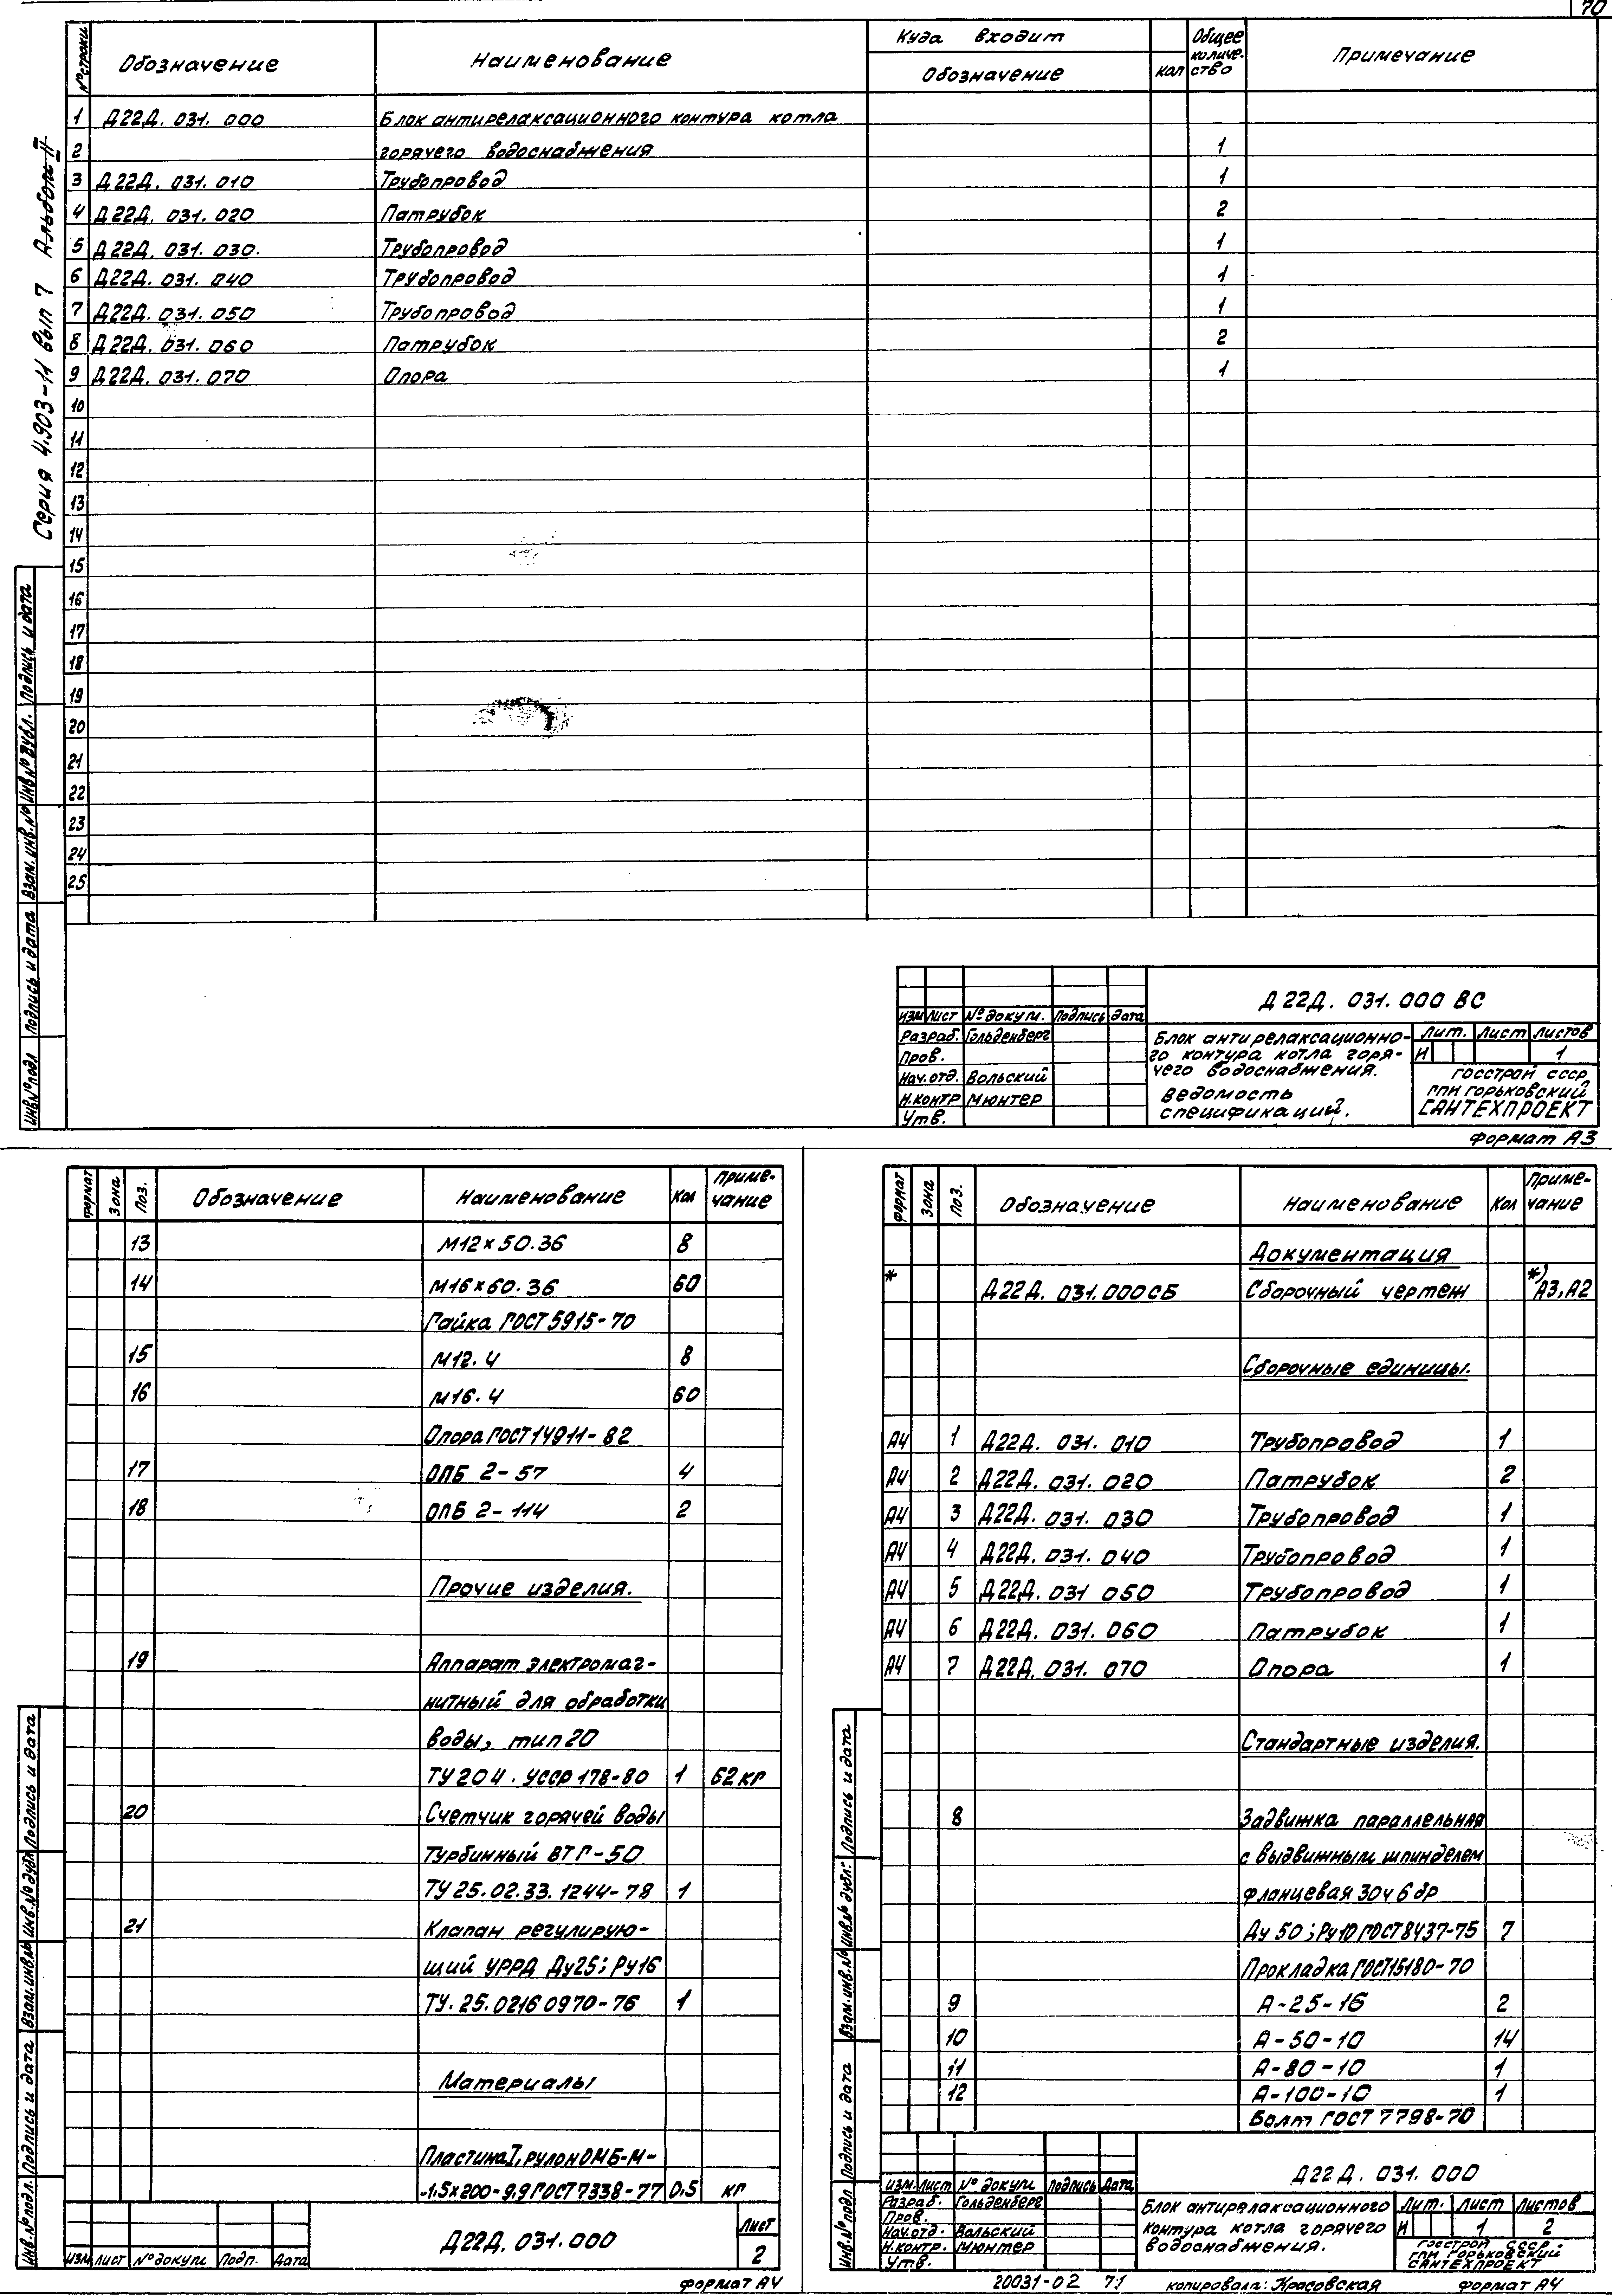 70
Серия 4.903-11 вып 7 Альбом II
№ строки Обозначение Наименование Куда входит Общее количе-ство Примечание
Обозначение кол
1 Д22Д. 031. 000 Блок антирелаксационного контура котла
2 горячего водоснабжения 1
3 Д22Д. 031. 010 Трубопровод 1
4 Д22Д. 031. 020 Патрубок 2
5 Д22Д. 031. 030. Трубопровод 1
6 Д22Д. 031. 040 Трубопровод 1
7 Д22Д. 031. 050 Трубопровод 1
8 Д22Д. 031. 060 Патрубок 2
9 Д22Д. 031. 070 Опора 1
10
11
12
13
14
15
16
17
18
19
20
21
22
23
24
25
Инв.№подл Подпись и дата Взам.инв.№ Инв.№дубл. Подпись и дата
Д22Д. 031. 000 ВС
изм лист № докум. Подпись дата
Разраб. Гольденберг
Пров.
Нач.отд. Вольский
Н.контр Мюнтер
Утв.
Блок антирелаксационно-
го контура котла горя-
чего водоснабжения.
Ведомость
спецификаций.
Лит. Лист Листов
И 1
Госстрой СССР
ГПИ Горьковский
САНТЕХПРОЕКТ
Формат А3
формат Зона Поз. Обозначение Наименование Кол Приме-чание
13 М12×50.36 8
14 М16×60.36 60
Гайка ГОСТ 5915-70
15 М12.4 8
16 М16.4 60
Опора ГОСТ 14911-82
17 ОПБ 2-57 4
18 ОПБ 2-114 2
Прочие изделия.
19 Аппарат электромаг-
нитный для обработки
воды, тип 20
ТУ 204. УССР 178-80 1 62 кг
20 Счетчик горячей воды
турбинный ВТГ-50
ТУ 25.02.33.1244-78 1
21 Клапан регулирую-
щий УРРД Ду25; Ру16
ТУ. 25.0216 0970-76 1
Материалы
Пластина I, рулон ОМБ-М-
-1.5×200-9.9 ГОСТ 7338-77 0.5 кг
Инв.№подл. Подпись и дата Взам.инв.№ Инв.№ дубл Подпись и дата
изм лист № докум Подп. Дата
Д22Д. 031. 000
Лист
2
формат А4
формат Зона Поз. Обозначение Наименование Кол Приме-чание
Документация
* Д22Д. 031.000СБ Сборочный чертеж *) А3, А2
Сборочные единицы.
А4 1 Д22Д. 031. 010 Трубопровод 1
А4 2 Д22Д. 031. 020 Патрубок 2
А4 3 Д22Д. 031. 030 Трубопровод 1
А4 4 Д22Д. 031. 040 Трубопровод 1
А4 5 Д22Д. 031 050 Трубопровод 1
А4 6 Д22Д. 031. 060 Патрубок 1
А4 7 Д22Д. 031. 070 Опора 1
Стандартные изделия.
8 Задвижка параллельная
с выдвижным шпинделем
фланцевая 30ч 6 бр
Ду 50; Ру10 ГОСТ 8437-75 7
Прокладка ГОСТ 15180-70
9 А-25-16 2
10 А-50-10 14
11 А-80-10 1
12 А-100-10 1
Болт ГОСТ 7798-70
Инв.№ подл Подпись и дата Взам.инв.№ Инв.№ дубл. Подпись и дата
Д22Д. 031. 000
изм. лист № докум Подпись Дата
Разраб. Гольденберг
Пров.
Нач.отд. Вольский
Н.контр. Мюнтер
Утв.
Блок антирелаксационного
контура котла горячего
водоснабжения.
Лит. Лист Листов
И 1 2
Госстрой СССР
ГПИ Горьковский
САНТЕХПРОЕКТ
20031-02 71 копировала: Красовская формат А4